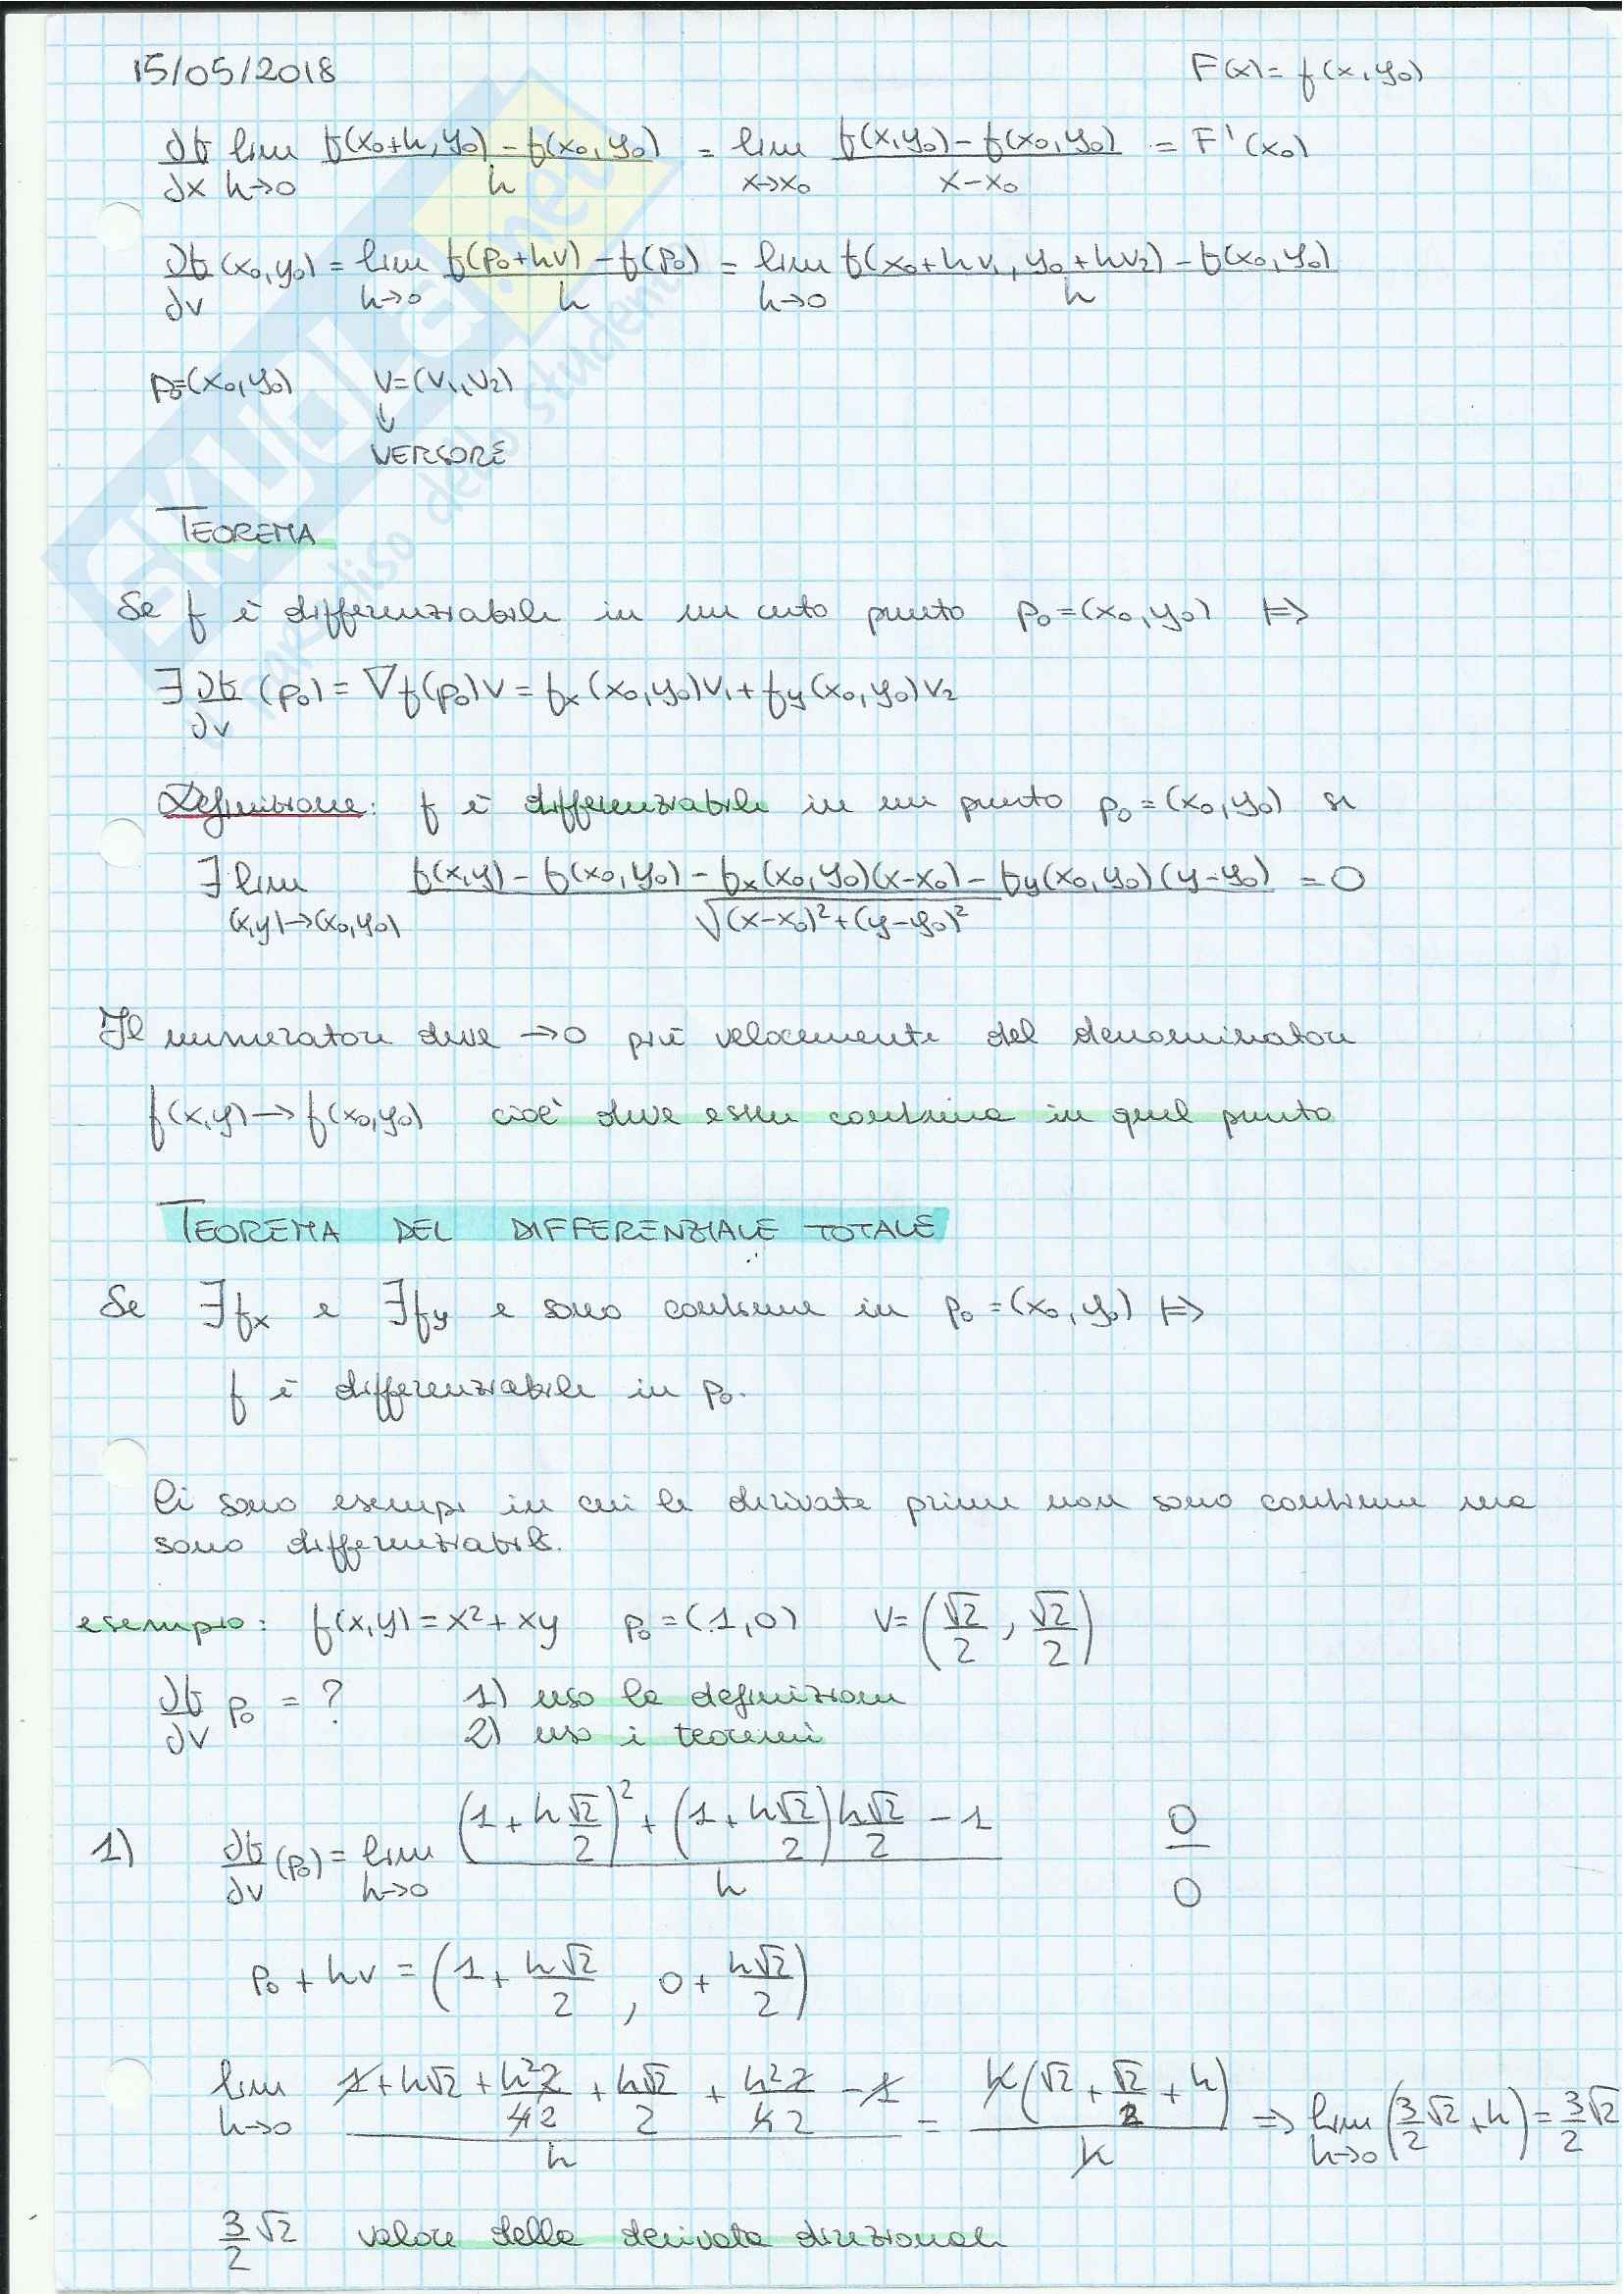 15/05/2018 F(x) = f(x,y₀)
∂f/∂x lim h→0 (f(x₀+h, y₀) - f(x₀, y₀))/h = lim x→x₀ (f(x,y₀) - f(x₀,y₀))/(x-x₀) = F'(x₀)
∂f/∂v (x₀,y₀) = lim h→0 (f(p₀+hv) - f(p₀))/h = lim h→0 (f(x₀+hv₁, y₀+hv₂) - f(x₀,y₀))/h
p₀=(x₀,y₀) v=(v₁,v₂)
↓
VERSORE
TEOREMA
Se f è differenziabile in un certo punto p₀=(x₀,y₀) ⟼
∃ ∂f/∂v (p₀) = ∇f(p₀)v = fx(x₀,y₀)v₁ + fy(x₀,y₀)v₂
Definizione: f è differenziabile in un punto p₀=(x₀,y₀) se
∃ lim (x,y)→(x₀,y₀) (f(x,y) - f(x₀,y₀) - fx(x₀,y₀)(x-x₀) - fy(x₀,y₀)(y-y₀))/√((x-x₀)²+(y-y₀)²) = 0
Il numeratore deve →0 più velocemente del denominatore
f(x,y) → f(x₀,y₀) cioè deve essere continua in quel punto
TEOREMA DEL DIFFERENZIALE TOTALE
Se ∃fx e ∃fy e sono continue in p₀=(x₀,y₀) ⟼
f è differenziabile in p₀.
Ci sono esempi in cui le derivate prime non sono continue ma
sono differenziabili.
esempio: f(x,y) = x²+xy p₀=(1,0) v=(√2/2, √2/2)
∂f/∂v p₀ = ? 1) uso la definizione
2) uso i teoremi
1) ∂f/∂v (p₀) = lim h→0 ((1+h√2/2)² + (1+h√2/2)h√2/2 - 1)/h 0/0
p₀+hv = (1+h√2/2, 0+h√2/2)
lim h→0 (1+h√2+h²2/42+h√2/2+h²2/42-1)/h = h(√2+√2/2+h)/h ⇒ lim h→0 (3/2√2+h) = 3√2/2
3/2 √2 valore della derivata direzionale
SKUOLA.net
paradiso dello studente